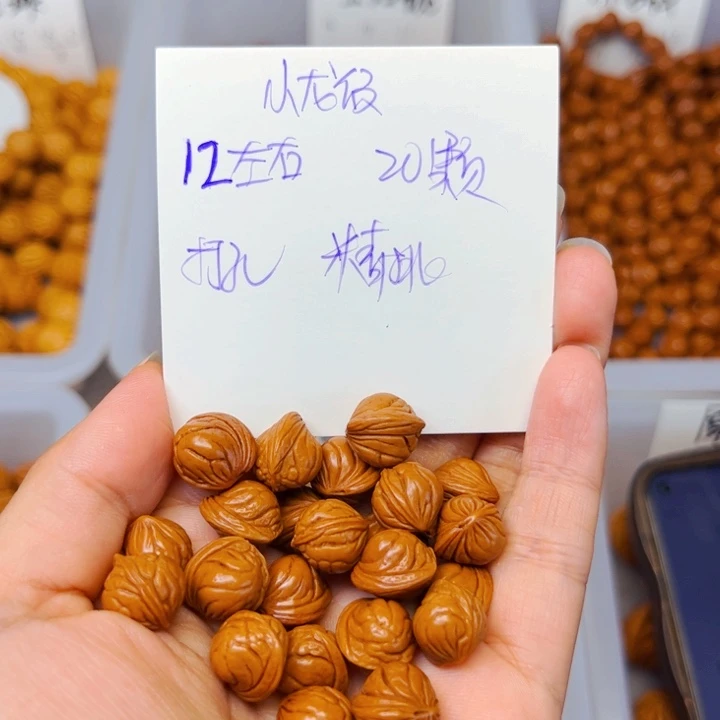 小龙纹
12左右 20颗
打孔 精挑